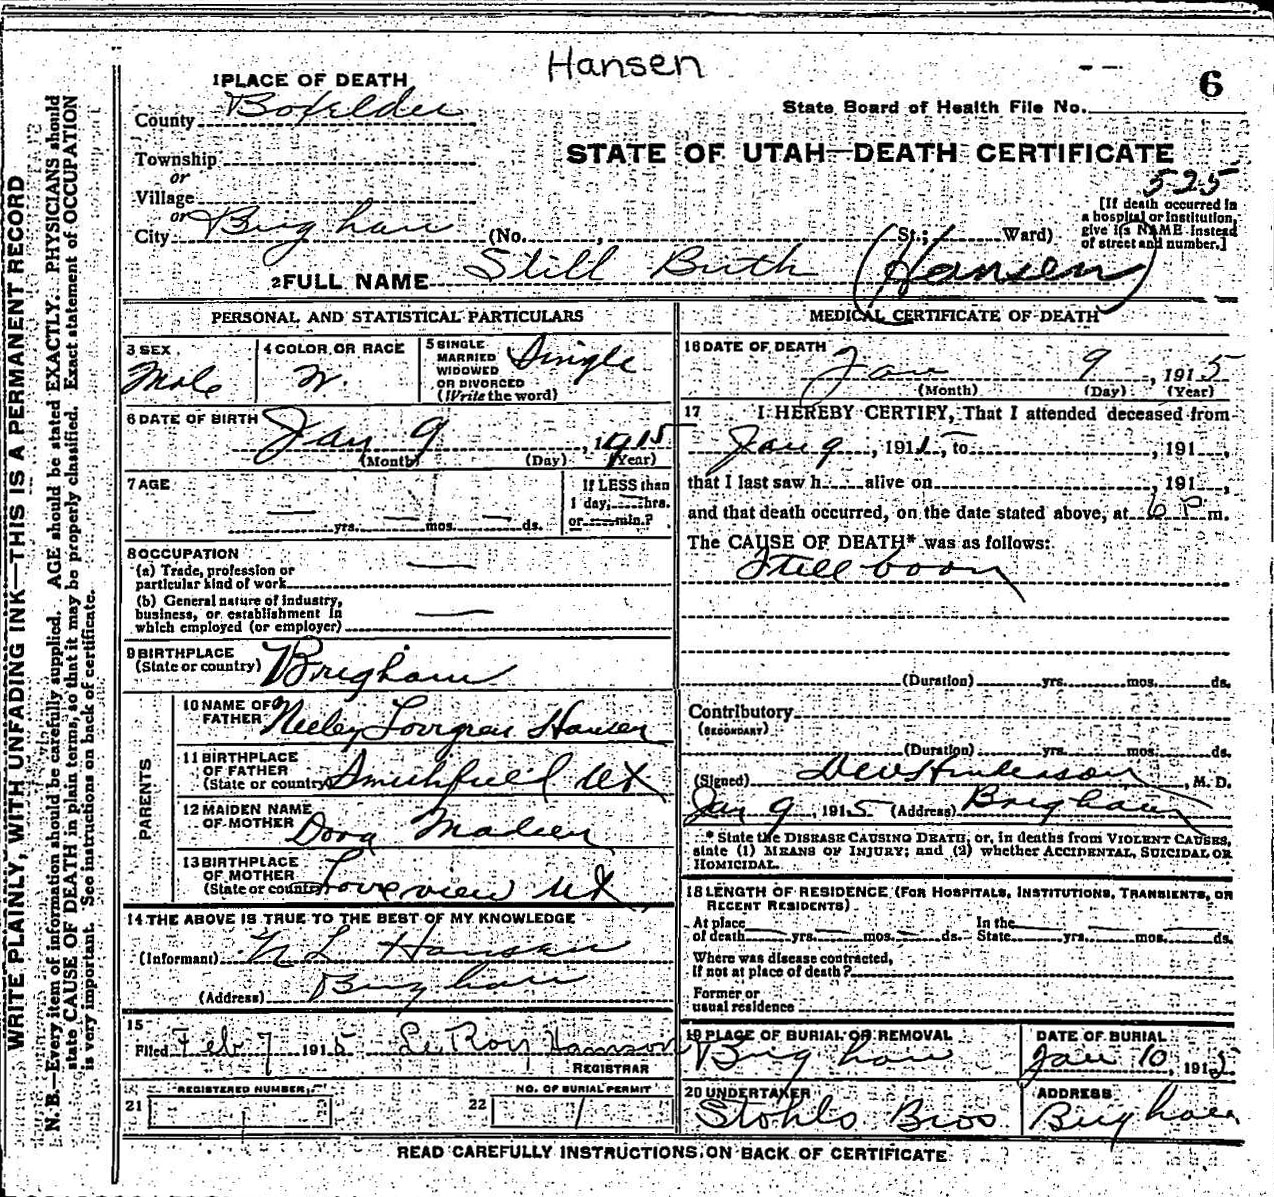 Hansen
6
1 PLACE OF DEATH
County Boxelder
State Board of Health File No.
STATE OF UTAH—DEATH CERTIFICATE
525
Township
or
Village
or
City Brigham (No. , St.; Ward)
[If death occurred in
a hospital or institution,
give its NAME instead
of street and number.]
2 FULL NAME Still Birth (Hansen)
PERSONAL AND STATISTICAL PARTICULARS
3 SEX
Male
4 COLOR OR RACE
W.
5 SINGLE
MARRIED
WIDOWED
OR DIVORCED
(Write the word)
Single
6 DATE OF BIRTH
Jan 9, 1915
(Month) (Day) (Year)
7 AGE
— yrs. — mos. — ds.
If LESS than
1 day, — hrs.
or — min.?
8 OCCUPATION
(a) Trade, profession or
particular kind of work —
(b) General nature of industry,
business, or establishment in
which employed (or employer) —
9 BIRTHPLACE
(State or country) Brigham
PARENTS
10 NAME OF
FATHER Neeley Lovgren Hansen
11 BIRTHPLACE
OF FATHER
(State or country) Smithfield Ut
12 MAIDEN NAME
OF MOTHER Dora Madsen
13 BIRTHPLACE
OF MOTHER
(State or country) Ut
14 THE ABOVE IS TRUE TO THE BEST OF MY KNOWLEDGE
(Informant) N L Hansen
(Address) Brigham
15
Filed Feb 7 1915 Le Roy Hanson
REGISTRAR
REGISTERED NUMBER
21
NO. OF BURIAL PERMIT
22
MEDICAL CERTIFICATE OF DEATH
16 DATE OF DEATH
Jan 9, 1915
(Month) (Day) (Year)
17 I HEREBY CERTIFY, That I attended deceased from
Jan 9, 1915, to , 191 ,
that I last saw h alive on , 191 ,
and that death occurred, on the date stated above, at 6 P m.
The CAUSE OF DEATH* was as follows:
Still born
(Duration) yrs. mos. ds.
Contributory
(SECONDARY)
(Duration) yrs. mos. ds.
(Signed) , M. D.
Jan 9, 1915 (Address) Brigham
* State the DISEASE CAUSING DEATH, or, in deaths from VIOLENT CAUSES,
state (1) MEANS OF INJURY; and (2) whether ACCIDENTAL, SUICIDAL OR
HOMICIDAL.
18 LENGTH OF RESIDENCE (FOR HOSPITALS, INSTITUTIONS, TRANSIENTS, OR
RECENT RESIDENTS)
At place
of death — yrs. — mos. — ds.
In the
State — yrs. — mos. — ds.
Where was disease contracted,
if not at place of death?
Former or
usual residence
19 PLACE OF BURIAL OR REMOVAL
Brigham
DATE OF BURIAL
Jan 10, 1915
20 UNDERTAKER
Stohls Bros
ADDRESS
Brigham
READ CAREFULLY INSTRUCTIONS ON BACK OF CERTIFICATE
WRITE PLAINLY, WITH UNFADING INK—THIS IS A PERMANENT RECORD
N. B.—Every item of information should be carefully supplied. AGE should be stated EXACTLY. PHYSICIANS should
state CAUSE OF DEATH in plain terms, so that it may be properly classified. Exact statement of OCCUPATION
is very important. See instructions on back of certificate.